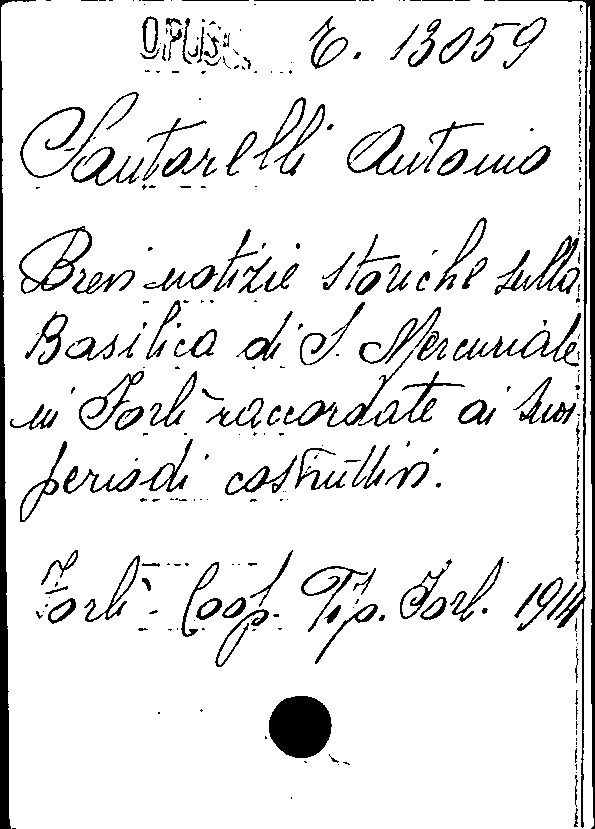 OPUSC. T. 13059
Santarelli Antonio
Brevi notizie storiche sulla
Basilica di S. Mercuriale
in Forlì raccordate ai suoi
periodi costruttivi.
Forlì - Coop. Tip. Forl. 1914